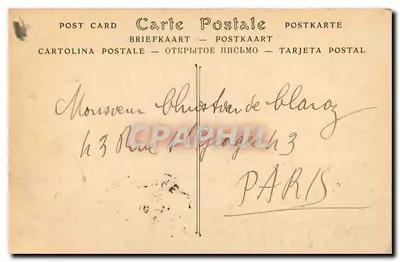 POST CARD Carte Postale POSTKARTE
BRIEFKAART — POSTKAART
CARTOLINA POSTALE — ОТКРЫТОЕ ПИСЬМО — TARJETA POSTAL
Monsieur de
43 Rue St Georges 43
PARIS
CPARAMA